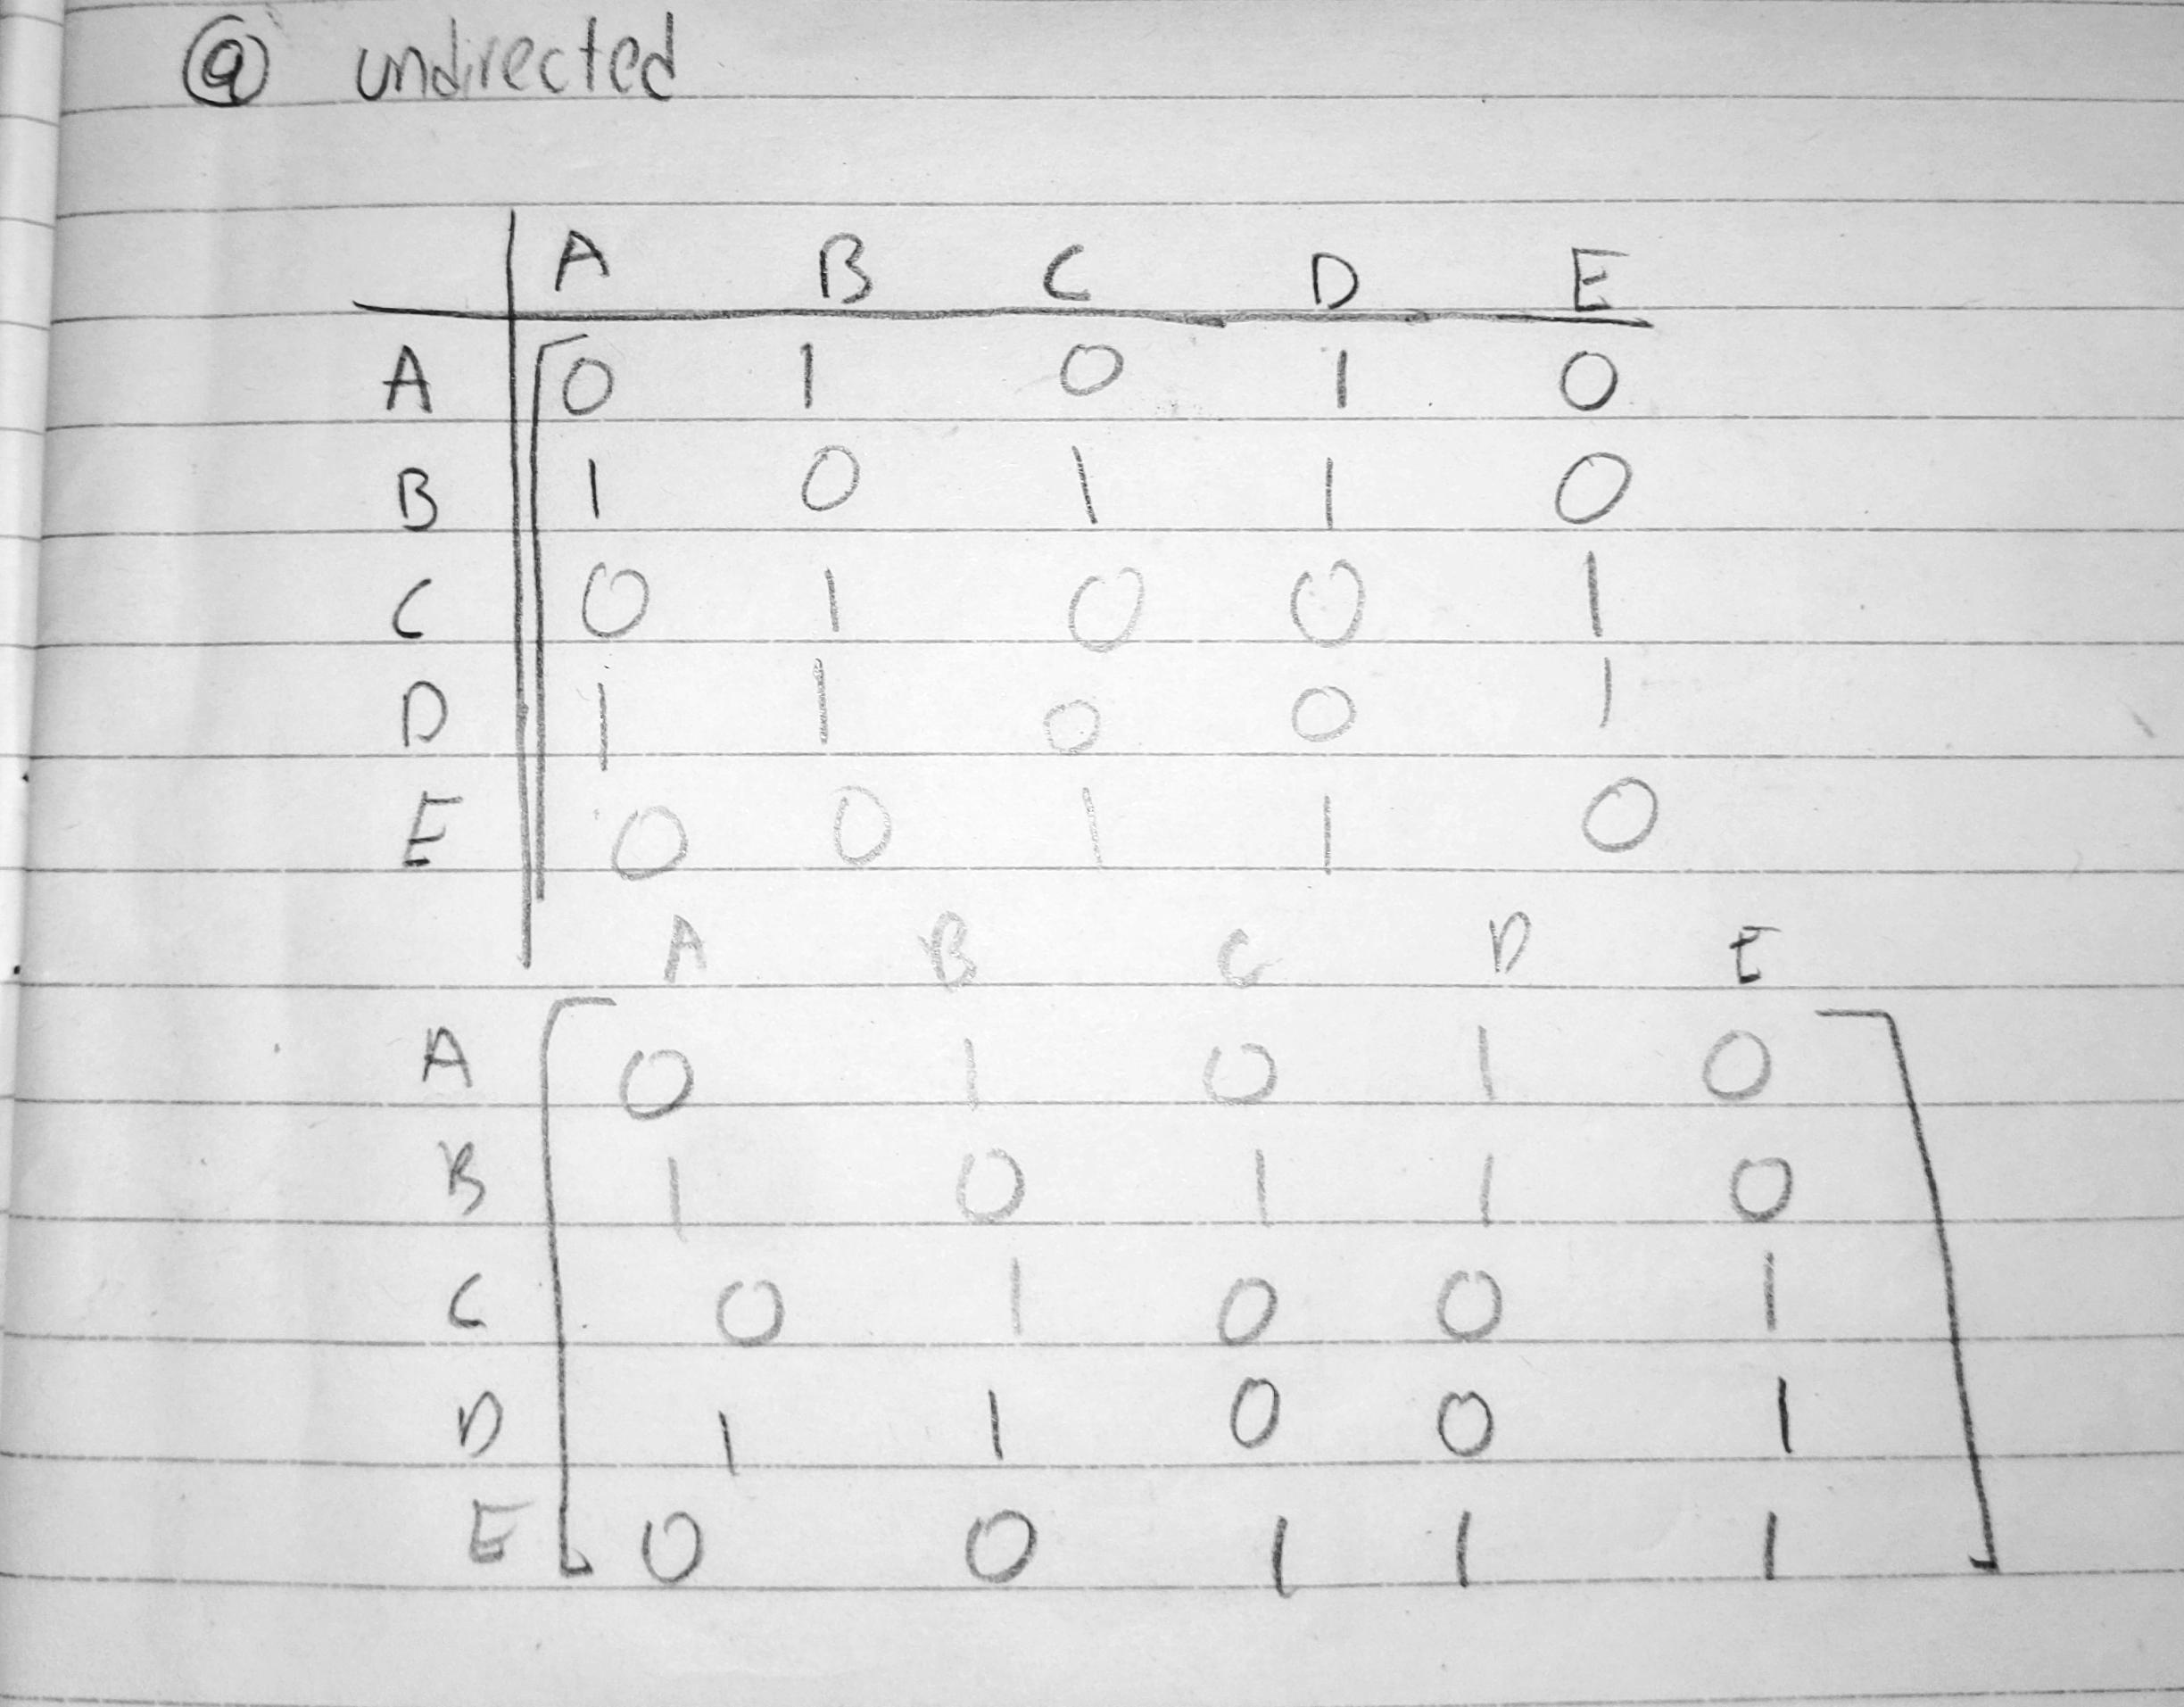 ⓐ undirected
A B C D E
A 0 1 0 1 0
B 1 0 1 1 0
C 0 1 0 0 1
D 1 1 0 0 1
E 0 0 1 1 0
A B C D E
A 0 1 0 1 0
B 1 0 1 1 0
C 0 1 0 0 1
D 1 1 0 0 1
E 0 0 1 1 1